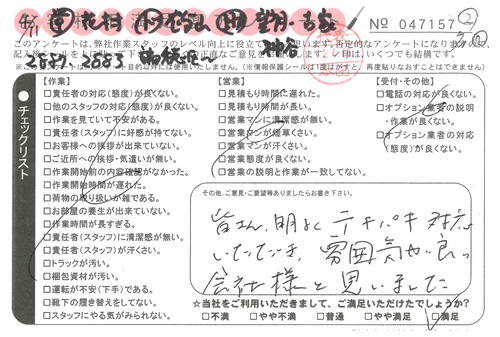 No 047157
このアンケートは、弊社作業スタッフのレベル向上に役立て
【作業】
□責任者の対応(態度)が良くない。
□他のスタッフの対応(態度)が良くない。
□作業を見ていて不安がある。
□責任者(スタッフ)に好感が持てない。
□お客様への挨拶が出来ていない。
□ご近所への挨拶・気遣いが無い。
□作業開始前の内容確認がなかった。
□作業開始時間が遅れた。
□荷物の取り扱いが雑である。
□お部屋の養生が出来ていない。
□作業時間が長すぎる。
□責任者(スタッフ)に清潔感が無い。
□責任者(スタッフ)が汗くさい。
□トラックが汚い。
□梱包資材が汚い。
□運転が不安(下手)である。
□靴下の履き替えをしてない。
□スタッフにやる気がみられない。
【営業】
□見積もり時間に遅れた。
□見積もり時間が長い。
□営業マンに清潔感が無い。
□営業マンが煙草くさい。
□営業マンが汗くさい。
□営業態度が良くない。
□営業の説明と作業が一致してない。
【受付・その他】
□電話の対応が良くない。
□オプション業者の説明・作業が良くない。
□オプション業者の対応(態度)が良くない。
チェックリスト
その他、ご意見・ご要望等ありましたらお書き下さい。
皆さん、明るく テキパキ 対応
いただき、雰囲気が良い
会社様と思いました
☆当社をご利用いただきまして、ご満足いただけたでしょうか?
□不満 □やや不満 □普通 □やや満足 □満足